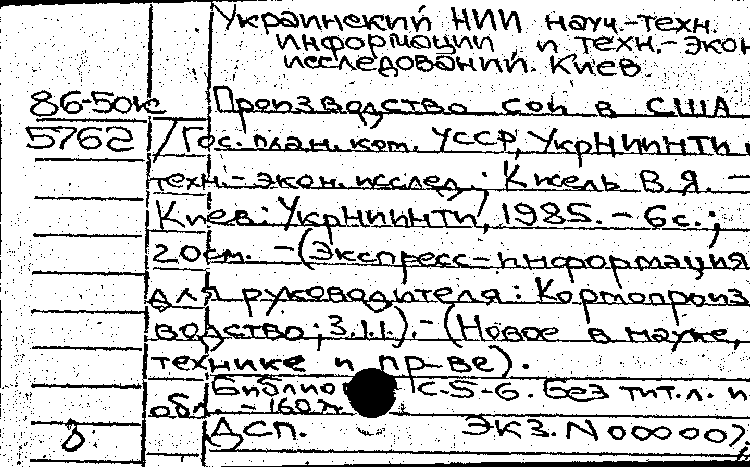 Украинский НИИ науч.-техн.
информации и техн.-экон
исследований. Киев.
86-50к Производство сои в США
5762 /Гос. план. ком. УССР, УкрНИИНТИ и
техн.-экон. исслед.; Кисель В.Я. –
Киев: УкрНИИНТИ, 1985. – 6с.;
20см. – (Экспресс-информация
для руководителя: Кормопроиз
водство; 3.1.1). – (Новое в науке,
технике и пр-ве).
Библио С.5-6. Без тит.л. и
обл. – 160
ДСП. ЭКЗ. N 000007